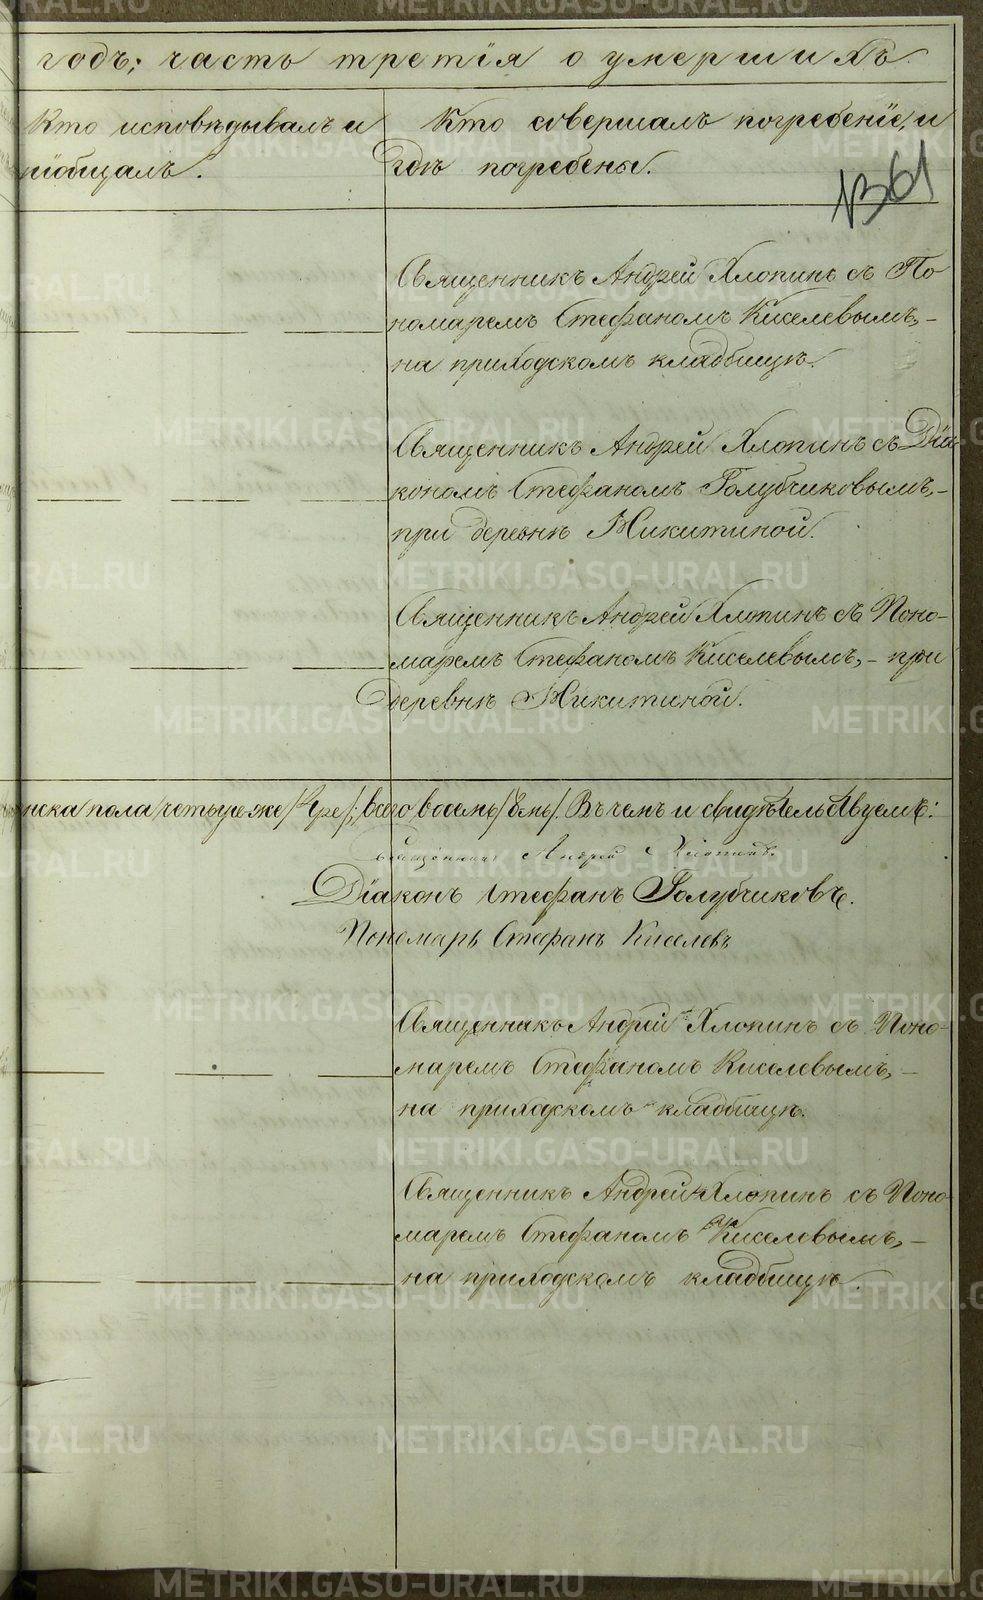 годъ; часть третія о умершихъ
Кто исповѣдывалъ и
піобщалъ.
Кто совершалъ погребеніе, и
гдѣ погребены.
1361
Священникъ Андрей Хлопинъ съ По
номаремъ Стефаномъ Киселевымъ,-
на приходскомъ кладбищѣ.
Священникъ Андрей Хлопинъ съ Діа
кономъ Стефаномъ Голубчиковымъ,-
при деревнѣ Микитиной.
Священникъ Андрей Хлопинъ съ Поно-
маремъ Стефаномъ Киселевымъ,- при
деревнѣ Микитиной.
нска пола четыре же /4ре/; всего восемь /8мь/. Въ чемъ и свидѣтельствуемъ:
Священникъ Андрей Хлопинъ.
Діаконъ Стефанъ Голубчиковъ.
Пономарь Стефанъ Киселевъ
Священникъ Андрей Хлопинъ съ Поно-
маремъ Стефаномъ Киселевымъ,-
на приходскомъ кладбищѣ.
Священникъ Андрей Хлопинъ съ Поно-
маремъ Стефаномъ Киселевымъ,-
на приходскомъ кладбищѣ.
METRIKI.GASO-URAL.RU